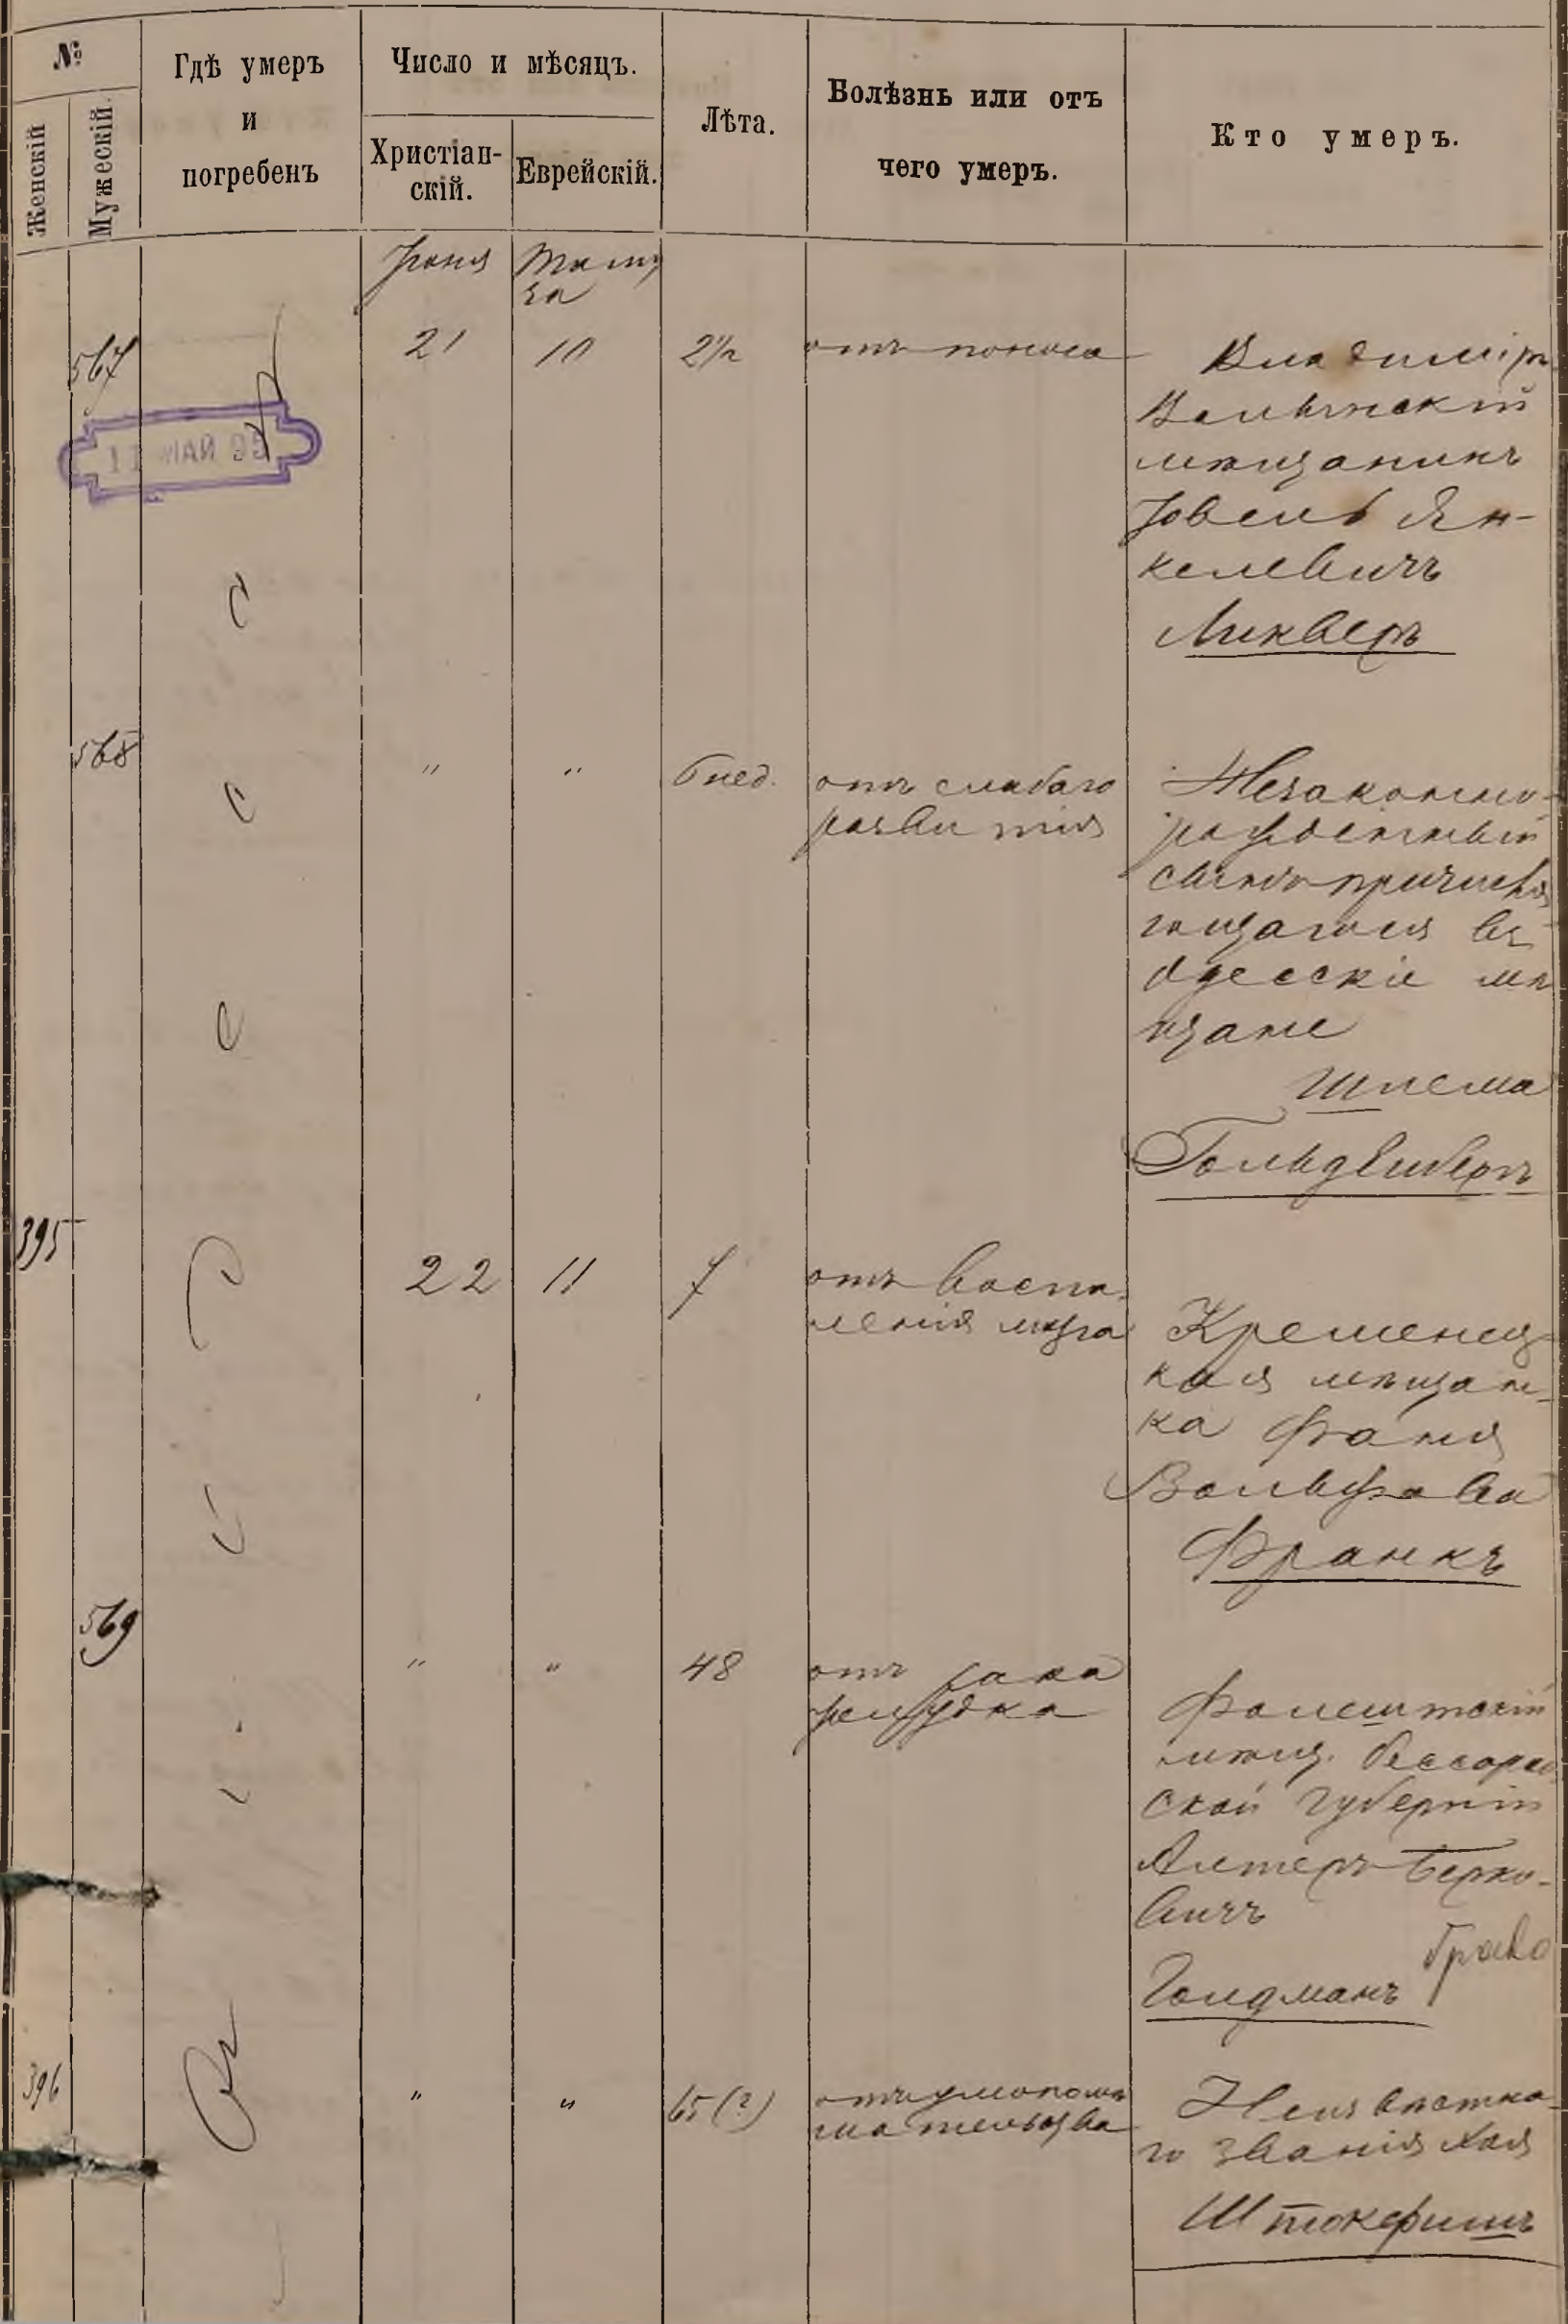 №
Женскій
Мужескій.
Гдѣ умеръ
и
погребенъ
Число и мѣсяцъ.
Христіан-
скій.
Еврейскій.
Лѣта.
Болѣзнь или отъ
чего умеръ.
Кто умеръ.
Іюня
Таму
за
567
21
10
2½
отъ поноса
Владимiръ
Волынскій
мѣщанинъ
Іовель Ян-
келевичъ
Ликверъ
568
"
"
6 нед.
отъ слабаго
развитія
Незаконно-
рожденный
сынъ
гощагося въ
Одесскіе мѣ
щане
Шлема
395
22
11
7
отъ воспа-
ленія мозга
Кременец
кая мѣщан-
ка Фаня
Вольфова
Франкъ
569
"
"
48
отъ рака
желудка
Фалештскій
мѣщ. Бессараб
ской губерніи
Алтеръ Берко-
вичъ
Голдманъ
396
"
"
65 (?)
отъ умопомѣ
шательства
Неизвѣстна-
го званія Хая
Штокфишъ